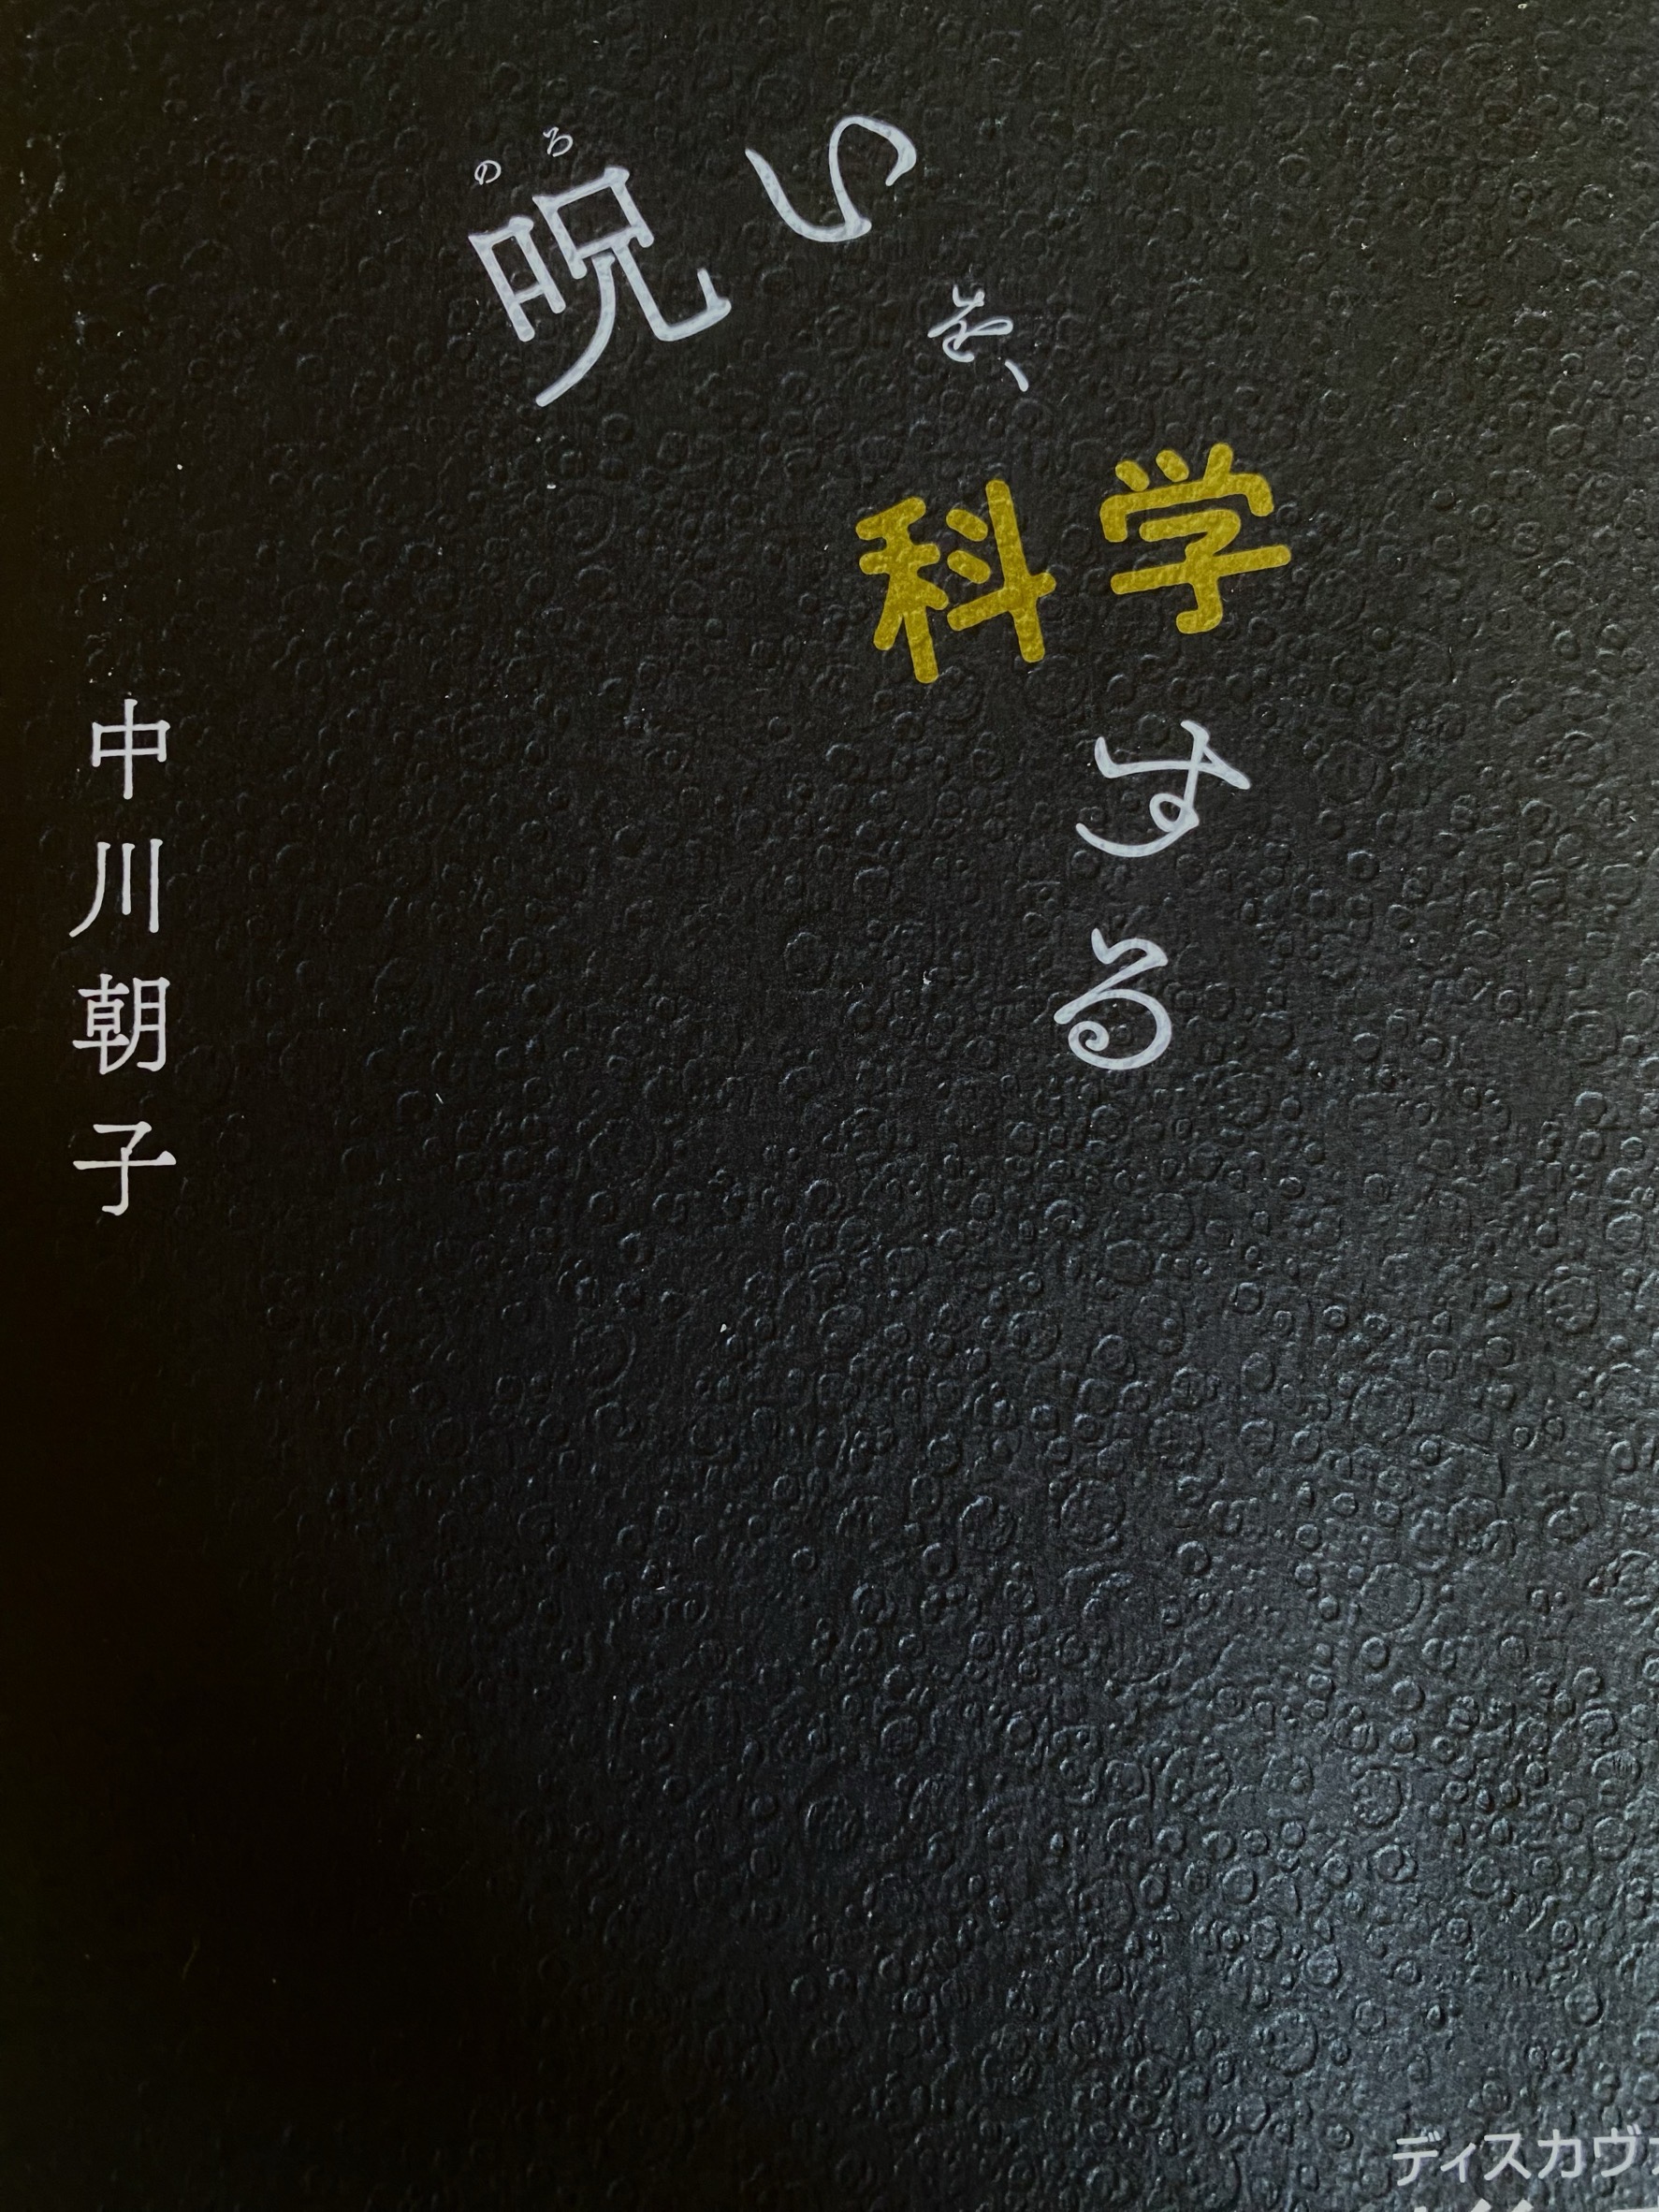 のろ
呪いを、
科学
する
中川朝子
ディスカヴ